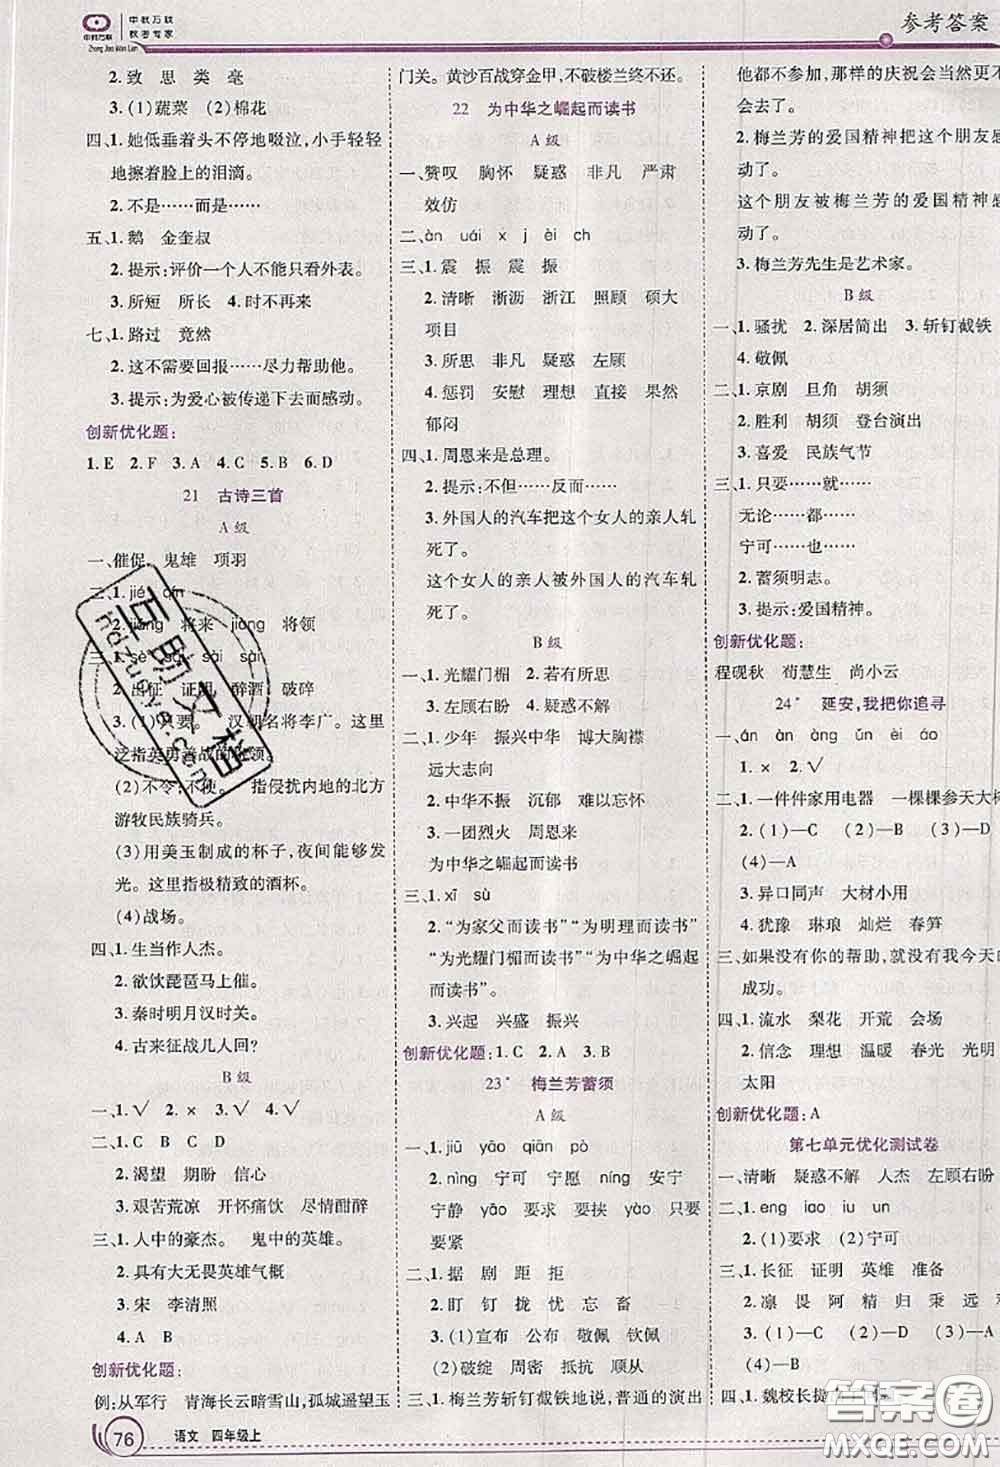 中教万联
中教万联
教考专家
Zhong Jiao Wan Lian
参考答案
2.致 思 类 毫
3.(1)蔬菜 (2)棉花
四、1.她低垂着头不停地啜泣,小手轻轻
地擦着脸上的泪滴。
2.不是……而是……
五、1.鹅 金奎叔
2.提示:评价一个人不能只看外表。
3.所短 所长 4.时不再来
七、1.路过 竟然
2.这不需要回报……尽力帮助他。
3.提示:为爱心被传递下去而感动。
创新优化题:
1.E 2.F 3.A 4.C 5.B 6.D
21 古诗三首
A级
一、催促 鬼雄 项羽
二、1.jié
2.jiāng 将来 jiàng 将领
三、1. sài sài
2.出征 证明 醉酒 破碎
3.(1)只要。 汉朝名将李广。这里
泛指英勇善战的将领。
(2)不令;不使。 指侵扰内地的北方
游牧民族骑兵。
(3)用美玉制成的杯子,夜间能够发
光。这里指极精致的酒杯。
(4)战场。
四、1.生当作人杰。
2.欲饮琵琶马上催。
3.秦时明月汉时关。
4.古来征战几人回?
B级
一、1.√ 2.× 3.√ 4.√
二、1.C B C D
2.渴望 期盼 信心
3.艰苦荒凉 开怀痛饮 尽情酣醉
三、1.人中的豪杰。 鬼中的英雄。
2.具有大无畏英雄气概
3.宋 李清照
4.A B
创新优化题:
例:从军行 青海长云暗雪山,孤城遥望玉
门关。黄沙百战穿金甲,不破楼兰终不还。
22 为中华之崛起而读书
A级
一、赞叹 胸怀 疑惑 非凡 严肃
效仿
二、àn uái x j èi ch
三、1.震 振 震 振
2.清晰 淅沥 浙江 照顾 硕大
项目
3.所思 非凡 疑惑 左顾
4.惩罚 安慰 理想 直接 果然
郁闷
四、1.周恩来是总理。
2.提示:不但……反而……
3.外国人的汽车把这个女人的亲人轧
死了。
这个女人的亲人被外国人的汽车轧
死了。
B级
一、1.光耀门楣 2.若有所思
3.左顾右盼 4.疑惑不解
二、1.少年 振兴中华 博大胸襟
远大志向
2.中华不振 沉郁 难以忘怀
3.一团烈火 周恩来
为中华之崛起而读书
三、1.xī sù
2.“为家父而读书”“为明理而读书”
“为光耀门楣而读书”“为中华之崛起
而读书”。
3.兴起 兴盛 振兴
创新优化题:1.C 2.A 3.B
23* 梅兰芳蓄须
A级
一、1.jiū yāo qiān pò
2.nìng 宁可 宁愿 níng 安宁
宁静 yāo 要求 要挟 yào 只要
要紧
二、1.据 剧 距 拒
2.盯 钉 拢 忧 忘 畜
3.(1)宣布 公布 敬佩 钦佩
(2)破绽 面谢 抵抗 顺从
三、1.梅兰芳斩钉截铁地说,普通的演出
他都不参加,那样的庆祝会当然更不
会去了。
2.梅兰芳的爱国精神把这个朋友感
动了。
这个朋友被梅兰芳的爱国精神感
动了。
3.梅兰芳先生是艺术家。
B级
一、1.骚扰 2.深居简出 3.斩钉截铁
4.敬佩
二、1.京剧 旦角 胡须
2.胜利 胡须 登台演出
3.喜爱 民族气节
三、1.只要……就……
无论……都……
宁可……也……
2.蓄须明志。
3.提示:爱国精神。
创新优化题:
程砚秋 荀慧生 尚小云
24* 延安,我把你追寻
一、án àn àng ún èi áo
二、1.× 2.√
二、1.一件件家用电器 一棵棵参天大树
2.(1)—C (2)—B (3)—D
(4)—A
3.异口同声 大材小用
4.犹豫 琳琅 灿烂 春笋
三、如果没有你的帮助,就没有我今天的
成功。
四、1.流水 梨花 开荒 会场
2.信念 理想 温暖 春光 光明
太阳
创新优化题:A
第七单元优化测试卷
一、清晰 疑惑不解 人杰 左顾右盼
二、1.eng iao iu un
2.(1)要求 (2)宁可
三、1.长征 证明 英雄 准备
2.凛 畏 阿 精 归 乘 远
3.(1)D (2)A (3)B (4)C
四、1.魏校长提
76 语文 四年级上
答案卷
MXQE.COM
互助文档